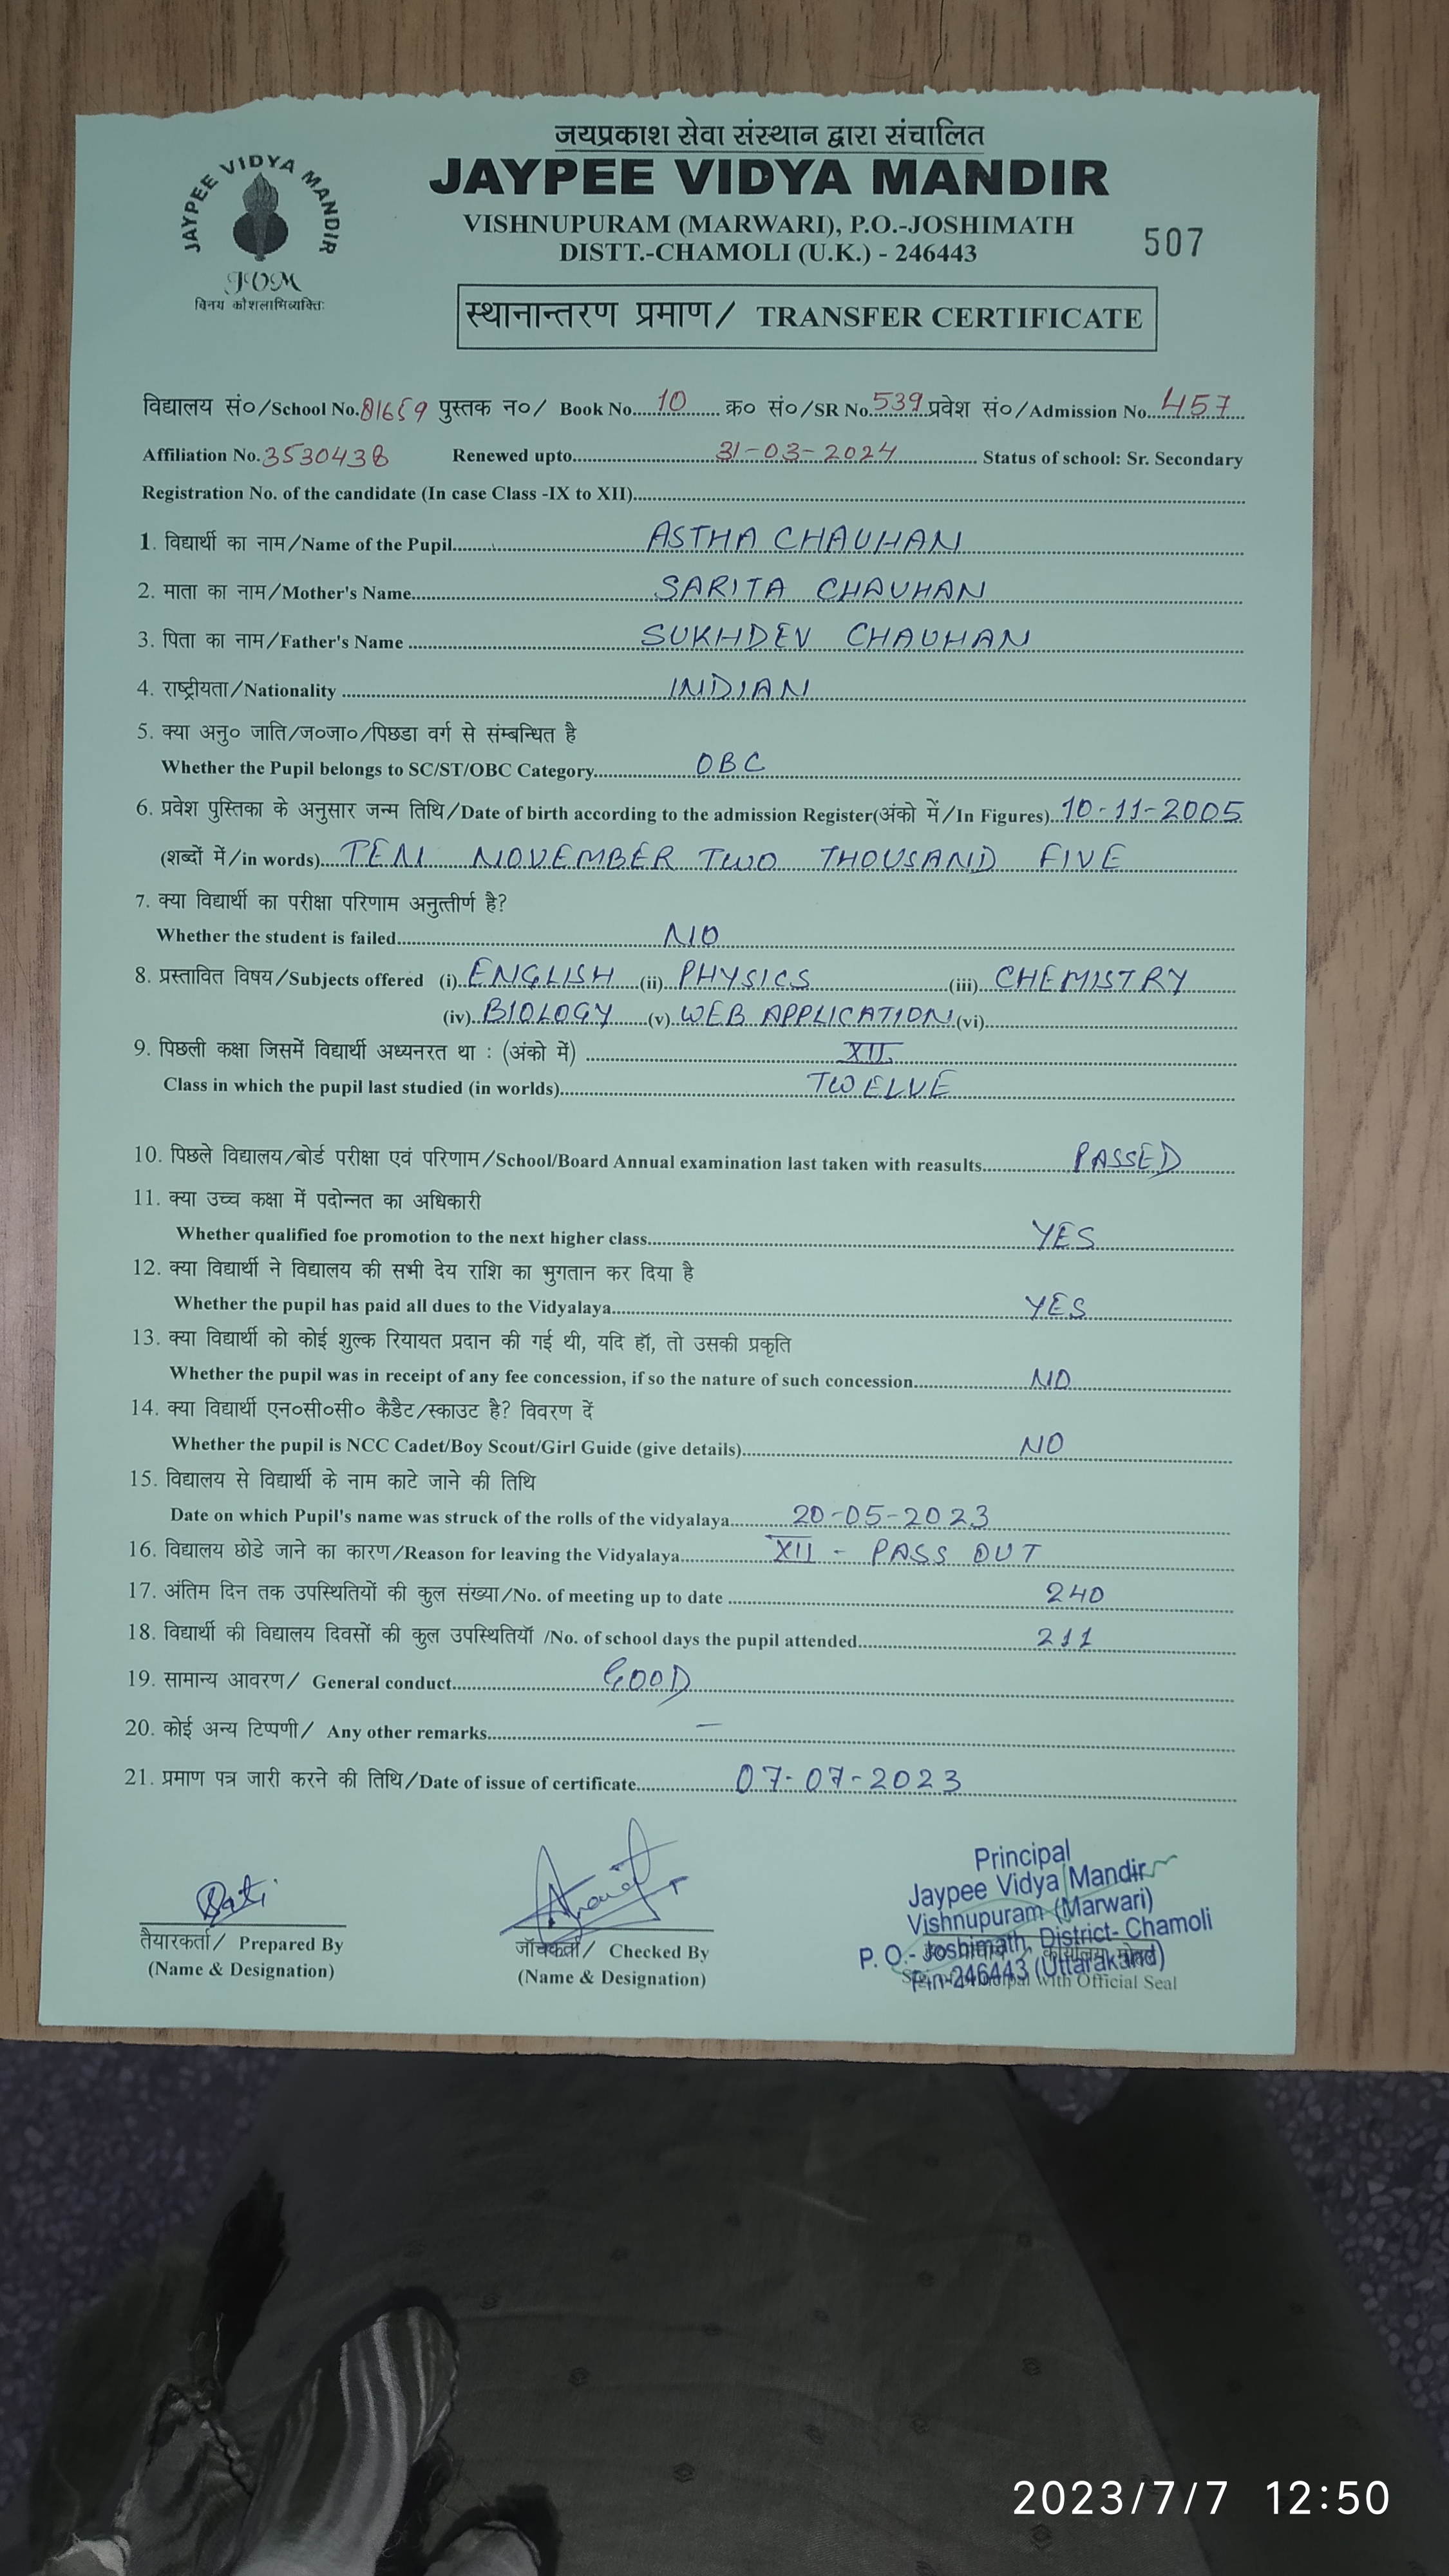 जयप्रकाश सेवा संस्थान द्वारा संचालित
JAYPEE VIDYA MANDIR
JAYPEE VIDYA MANDIR
VISHNUPURAM (MARWARI), P.O.-JOSHIMATH
DISTT.-CHAMOLI (U.K.) - 246443
507
JVM
विनय कौशलाभिव्यक्तिः
स्थानान्तरण प्रमाण/ TRANSFER CERTIFICATE
विद्यालय सं०/School No. 81659 पुस्तक न०/ Book No. 10 क्र० सं०/SR No. 539 प्रवेश सं०/Admission No. 457
Affiliation No. 3530438 Renewed upto 31-03-2024 Status of school: Sr. Secondary
Registration No. of the candidate (In case Class -IX to XII)
1. विद्यार्थी का नाम/Name of the Pupil ASTHA CHAUHAN
2. माता का नाम/Mother's Name SARITA CHAUHAN
3. पिता का नाम/Father's Name SUKHDEV CHAUHAN
4. राष्ट्रीयता/Nationality INDIAN
5. क्या अनु० जाति/ज०जा०/पिछडा वर्ग से संम्बन्धित है
Whether the Pupil belongs to SC/ST/OBC Category OBC
6. प्रवेश पुस्तिका के अनुसार जन्म तिथि/Date of birth according to the admission Register(अंको में/In Figures) 10-11-2005
(शब्दों में/in words) TEN NOVEMBER TWO THOUSAND FIVE
7. क्या विद्यार्थी का परीक्षा परिणाम अनुत्तीर्ण है?
Whether the student is failed NO
8. प्रस्तावित विषय/Subjects offered (i) ENGLISH (ii) PHYSICS (iii) CHEMISTRY
(iv) BIOLOGY (v) WEB APPLICATION (vi)
9. पिछली कक्षा जिसमें विद्यार्थी अध्यनरत था : (अंको में) XII
Class in which the pupil last studied (in worlds) TWELVE
10. पिछले विद्यालय/बोर्ड परीक्षा एवं परिणाम/School/Board Annual examination last taken with reasults PASSED
11. क्या उच्च कक्षा में पदोन्नत का अधिकारी
Whether qualified foe promotion to the next higher class YES
12. क्या विद्यार्थी ने विद्यालय की सभी देय राशि का भुगतान कर दिया है
Whether the pupil has paid all dues to the Vidyalaya YES
13. क्या विद्यार्थी को कोई शुल्क रियायत प्रदान की गई थी, यदि हॉ, तो उसकी प्रकृति
Whether the pupil was in receipt of any fee concession, if so the nature of such concession NO
14. क्या विद्यार्थी एन०सी०सी० कैडैट/स्काउट है? विवरण दें
Whether the pupil is NCC Cadet/Boy Scout/Girl Guide (give details) NO
15. विद्यालय से विद्यार्थी के नाम काटे जाने की तिथि
Date on which Pupil's name was struck of the rolls of the vidyalaya 20-05-2023
16. विद्यालय छोडे जाने का कारण/Reason for leaving the Vidyalaya XII - PASS OUT
17. अंतिम दिन तक उपस्थितियों की कुल संख्या/No. of meeting up to date 240
18. विद्यार्थी की विद्यालय दिवसों की कुल उपस्थितियॉ /No. of school days the pupil attended 211
19. सामान्य आवरण/ General conduct GOOD
20. कोई अन्य टिप्पणी/ Any other remarks —
21. प्रमाण पत्र जारी करने की तिथि/Date of issue of certificate 07-07-2023
तैयारकर्ता/ Prepared By
(Name & Designation)
जॉचकर्ता/ Checked By
(Name & Designation)
Principal
Jaypee Vidya Mandir
Vishnupuram (Marwari)
P. O.- Joshimath, District- Chamoli
Pin-246443 (Uttarakand)
with Official Seal
2023/7/7 12:50